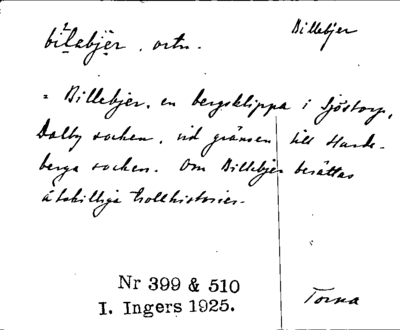 Billebjer
bilabjér, ortn.
= Billebjer, en bergsklippa i Sjöstorp,
Dalby socken, vid gränsen till Harde-
berga socken. Om Billebjer berättas
åtskilliga trollhistorier.
Nr 399 & 510
I. Ingers 1925.
Torna